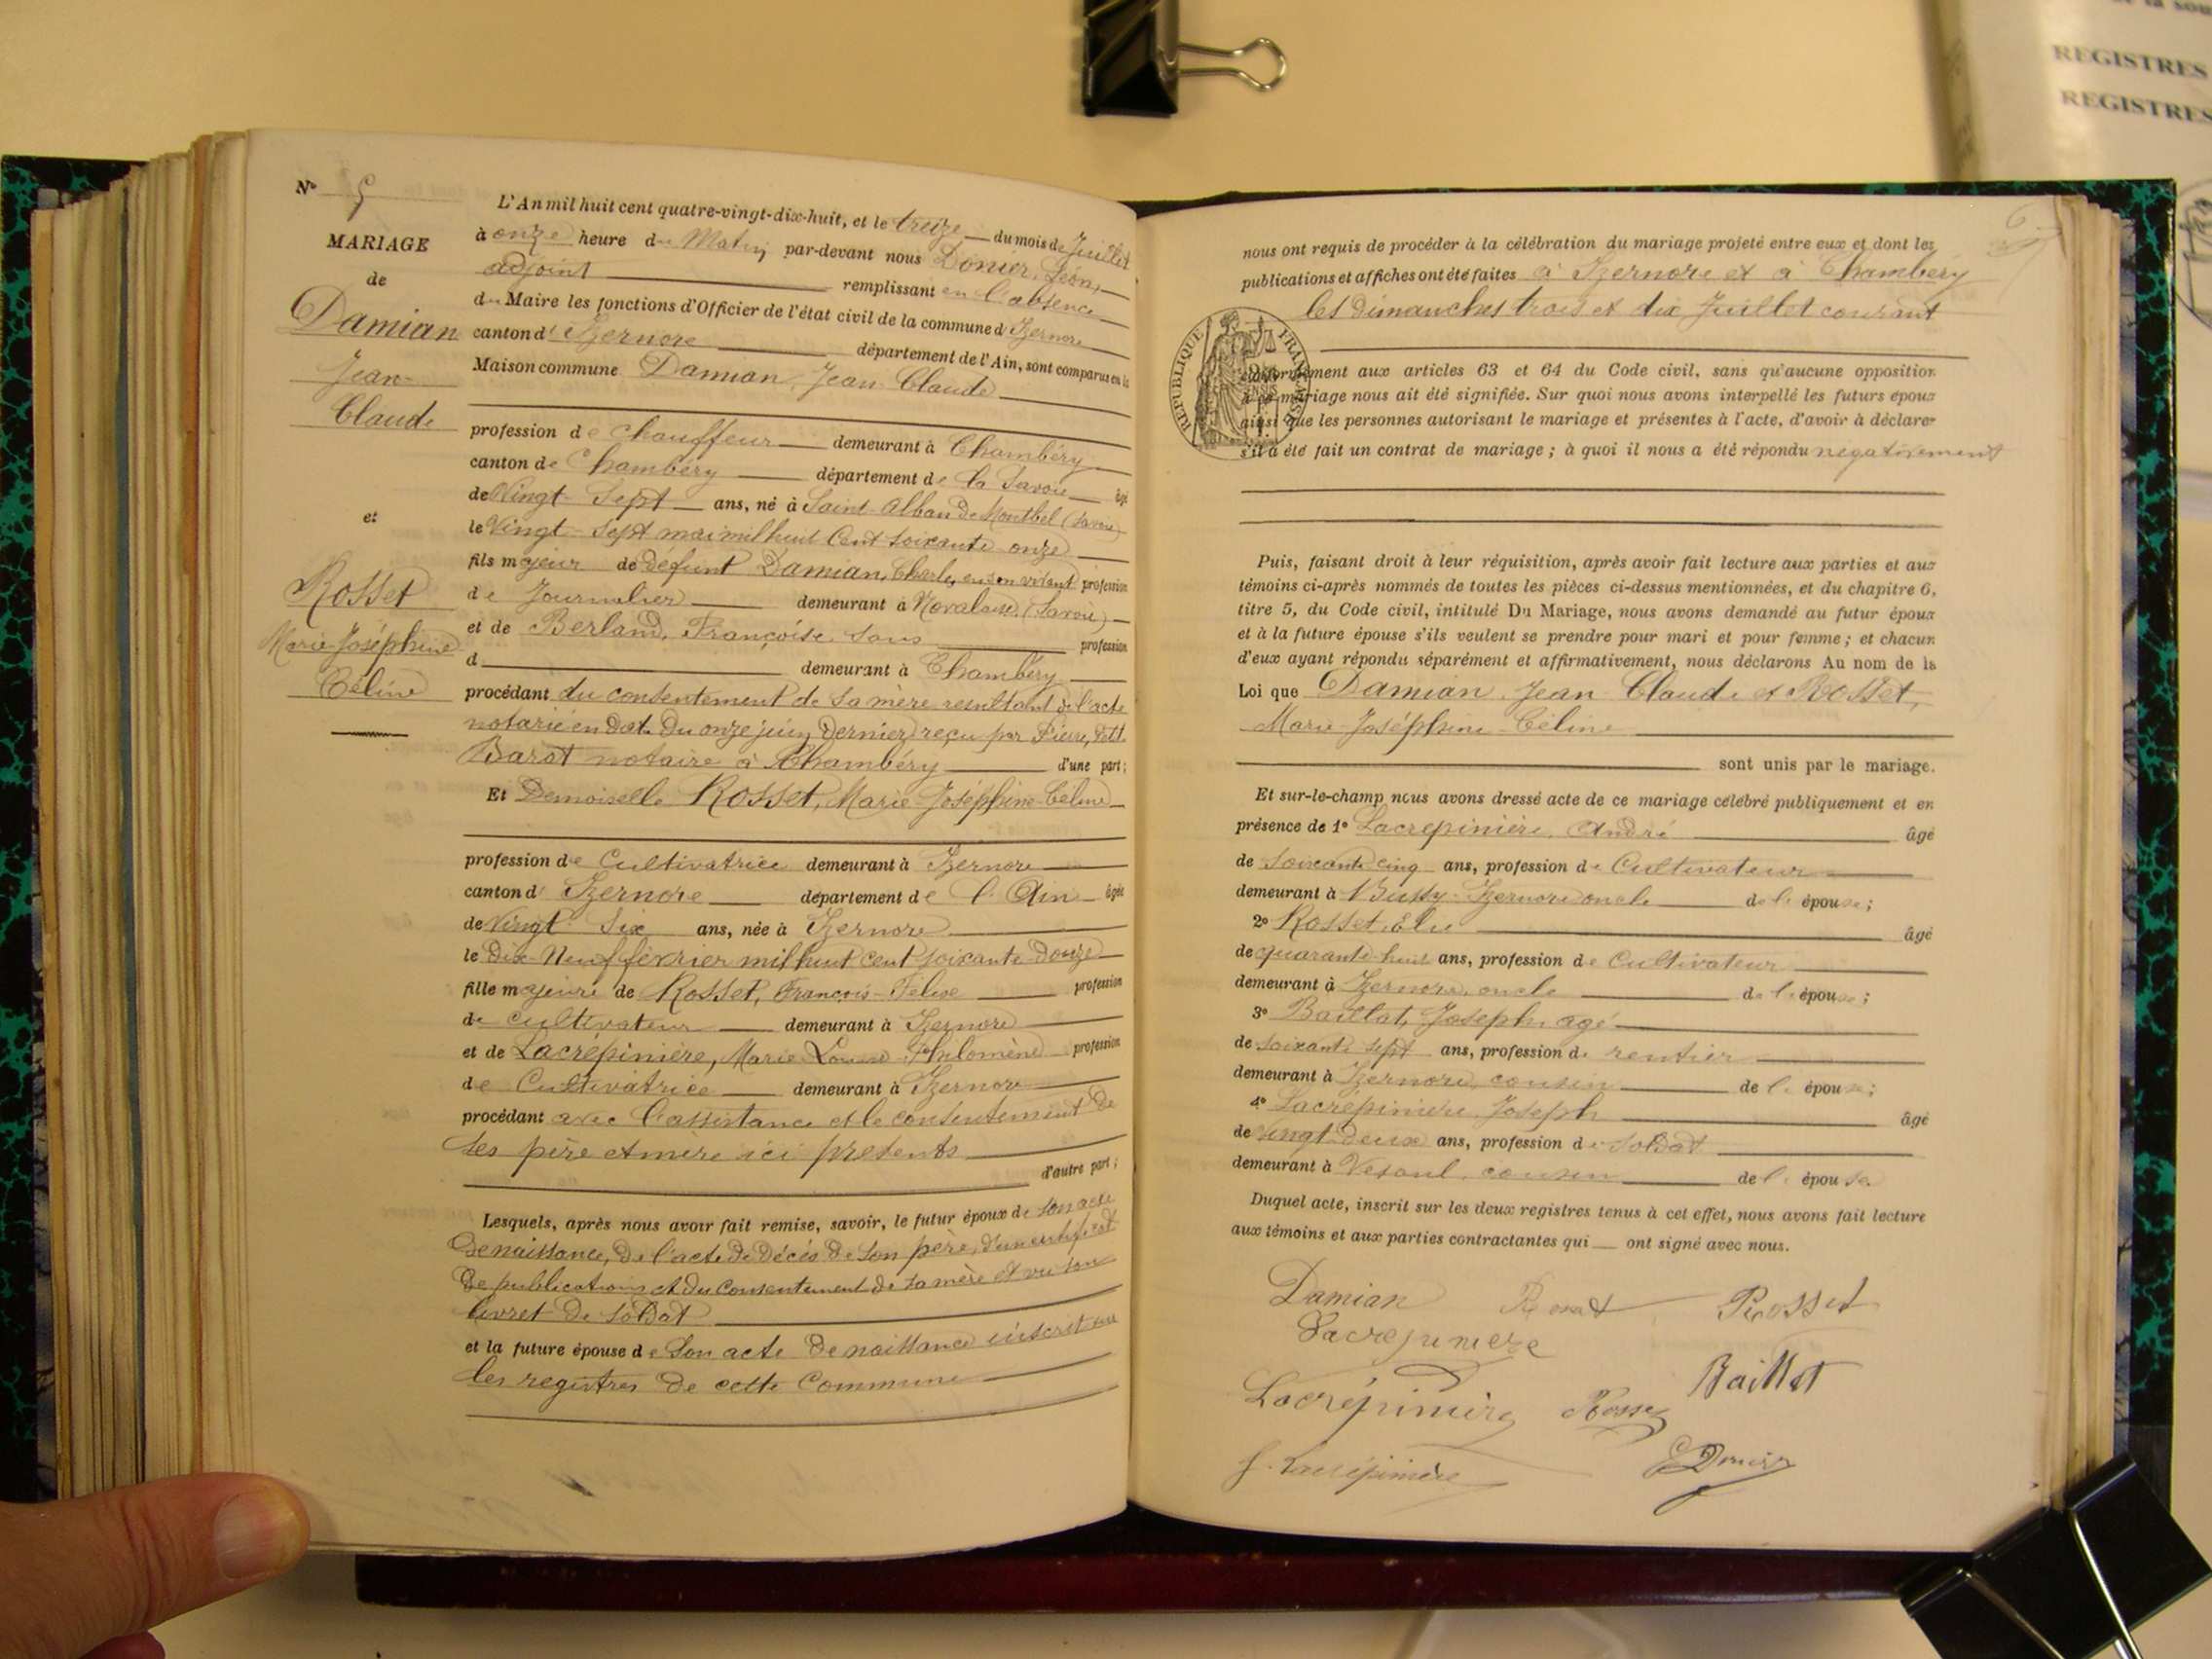 N° 5
MARIAGE
de
Damian
Jean-
Claude
et
Rosset
Marie-Joséphine
Céline
L'An mil huit cent quatre-vingt-dix-huit, et le treize du mois de Juillet
à onze heure du Matin par-devant nous Donier, Léon,
adjoint remplissant en l'absence
du Maire les fonctions d'Officier de l'état civil de la commune d'Izernore
canton d'Izernore département de l'Ain, sont comparus en la
Maison commune Damian, Jean Claude
profession de chauffeur demeurant à Chambéry
canton de Chambéry département de la Savoie âgé
de Vingt-Sept ans, né à Saint-Alban de Montbel (Savoie)
le Vingt-Sept mai mil huit Cent soixante onze
fils majeur de défunt Damian, Charles, en son vivant profession
de Journalier demeurant à Novalaise (Savoie)
et de Berland, Françoise sans profession
d demeurant à Chambéry
procédant du consentement de sa mère résultant de l'acte
notarié en date du onze juin dernier reçu par Petit
Barat notaire à Chambéry d'une part;
Et Demoiselle Rosset, Marie-Joséphine-Céline
profession de Cultivatrice demeurant à Izernore
canton d'Izernore département de l'Ain âgée
de Vingt Six ans, née à Izernore
le Dix-Neuf février mil huit cent soixante-douze
fille majeure de Rosset, François-Félix profession
de cultivateur demeurant à Izernore
et de Lacrépinière, Marie Louise Philomène profession
de Cultivatrice demeurant à Izernore
procédant avec l'assistance et le consentement de
ses père et mère ici présents
d'autre part;
Lesquels, après nous avoir fait remise, savoir, le futur époux de son acte
de naissance, de l'acte de décès de son père, d'un certificat
de publications et du consentement de sa mère et vu son
livret de soldat
et la future épouse de son acte de naissance inscrit sur
les registres de cette Commune
6
nous ont requis de procéder à la célébration du mariage projeté entre eux et dont les
publications et affiches ont été faites à Izernore et à Chambéry
les dimanches trois et dix Juillet courant
RÉPUBLIQUE FRANÇAISE
conformément aux articles 63 et 64 du Code civil, sans qu'aucune opposition
à ce mariage nous ait été signifiée. Sur quoi nous avons interpellé les futurs époux
ainsi que les personnes autorisant le mariage et présentes à l'acte, d'avoir à déclarer
s'il a été fait un contrat de mariage; à quoi il nous a été répondu négativement
Puis, faisant droit à leur réquisition, après avoir fait lecture aux parties et aux
témoins ci-après nommés de toutes les pièces ci-dessus mentionnées, et du chapitre 6,
titre 5, du Code civil, intitulé Du Mariage, nous avons demandé au futur époux
et à la future épouse s'ils veulent se prendre pour mari et pour femme; et chacun
d'eux ayant répondu séparément et affirmativement, nous déclarons Au nom de la
Loi que Damian, Jean Claude et Rosset,
Marie-Joséphine-Céline
sont unis par le mariage.
Et sur-le-champ nous avons dressé acte de ce mariage célébré publiquement et en
présence de 1° Lacrepinière, André âgé
de soixante cinq ans, profession de Cultivateur
demeurant à Bussy-Izernore oncle de l'épouse;
2° Rosset, Elie âgé
de quarante-huit ans, profession de Cultivateur
demeurant à Izernore, oncle de l'épouse;
3° Baillat, Joseph, agé
de soixante sept ans, profession de rentier
demeurant à Izernore, cousin de l'épouse;
4° Lacrépinière, Joseph âgé
de vingt-deux ans, profession de soldat
demeurant à Vesoul, cousin de l'épouse.
Duquel acte, inscrit sur les deux registres tenus à cet effet, nous avons fait lecture
aux témoins et aux parties contractantes qui ont signé avec nous.
Damian Rosset Rosset
Lacrepiniere
Baillat
Lacrépinière Rosset
J. Lacrépinière Donier
REGISTRES
REGISTRES